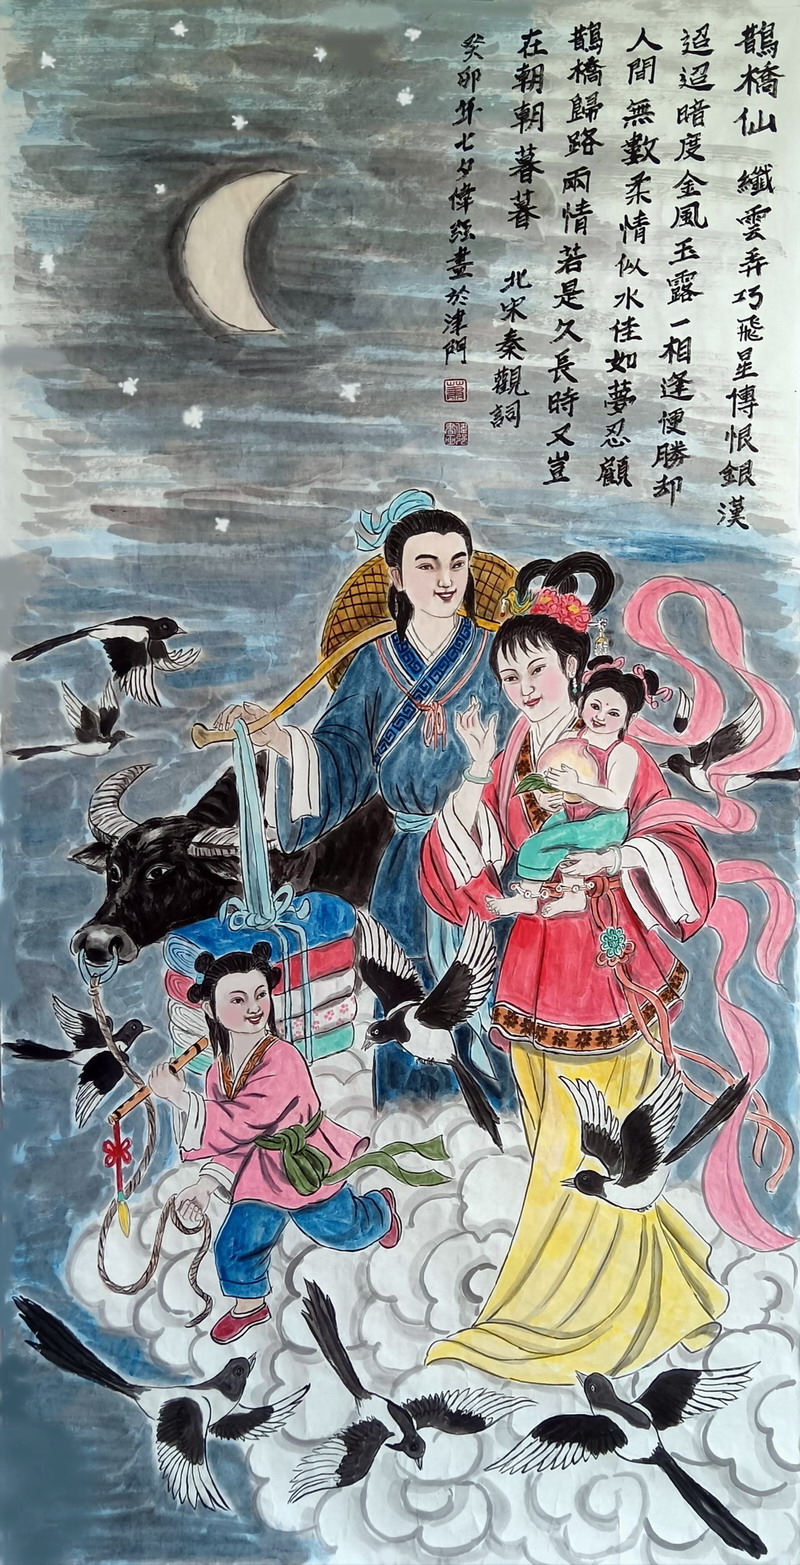 鵲橋仙 纖雲弄巧飛星傳恨銀漢
迢迢暗度金風玉露一相逢便勝却
人間無數柔情似水佳如夢忍顧
鵲橋歸路兩情若是久長時又豈
在朝朝暮暮 北宋秦觀詞
癸卯年七夕偉 畫於津門